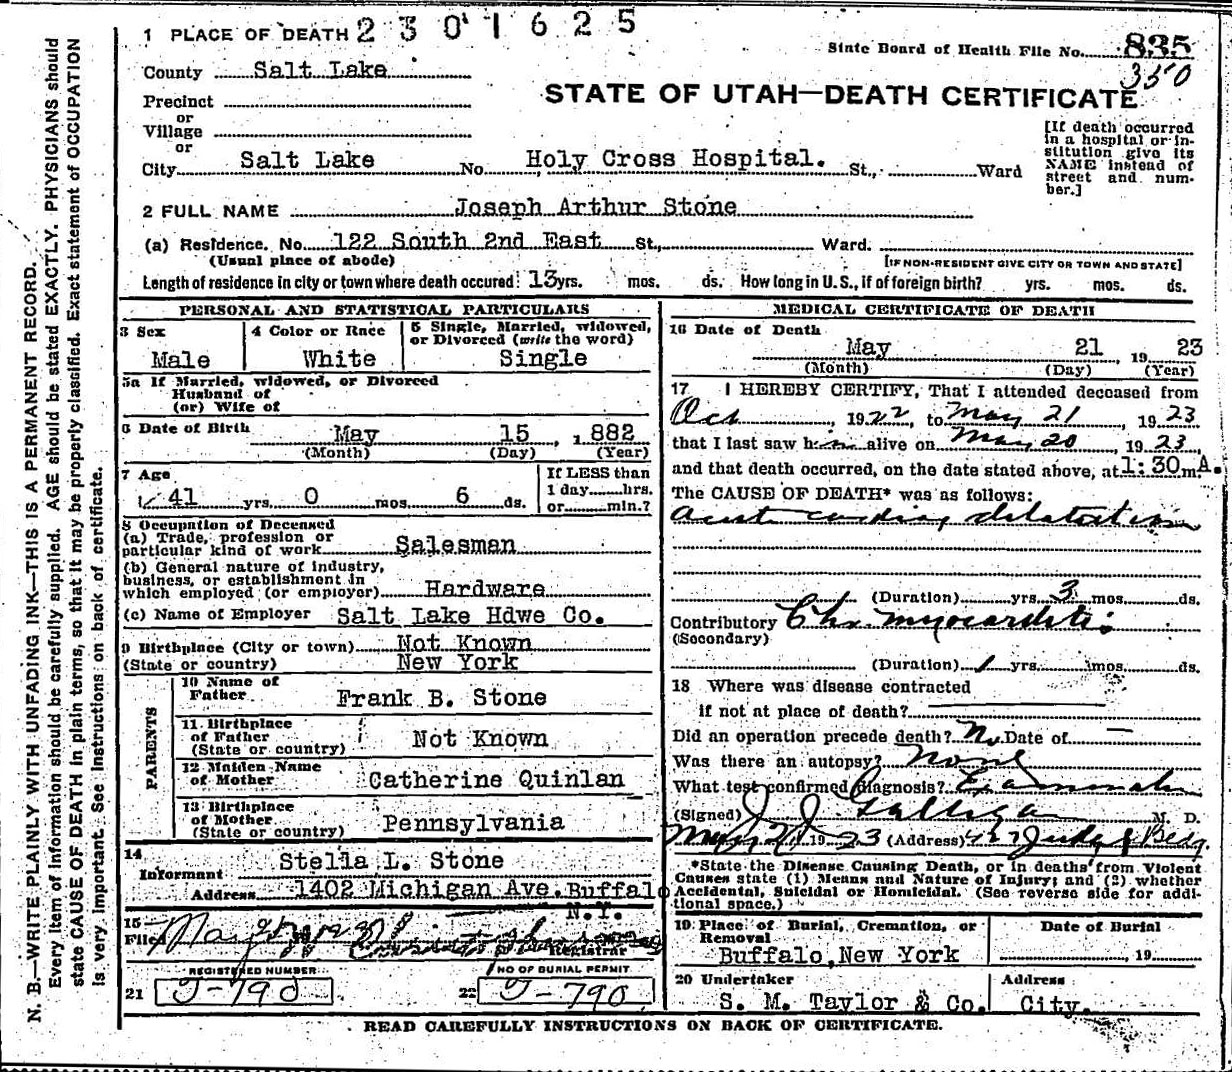 1 PLACE OF DEATH 2301625
State Board of Health File No. 835
350
County Salt Lake
STATE OF UTAH—DEATH CERTIFICATE
Precinct
or
Village
or
City Salt Lake No. Holy Cross Hospital. St., Ward
[If death occurred
in a hospital or in-
stitution give its
NAME instead of
street and num-
ber.]
2 FULL NAME Joseph Arthur Stone
(a) Residence. No. 122 South 2nd East St., Ward.
(Usual place of abode)
[IF NON-RESIDENT GIVE CITY OR TOWN AND STATE]
Length of residence in city or town where death occured 13 yrs. mos. ds. How long in U. S., if of foreign birth? yrs. mos. ds.
PERSONAL AND STATISTICAL PARTICULARS
3 Sex
Male
4 Color or Race
White
5 Single, Married, widowed,
or Divorced (write the word)
Single
5a If Married, widowed, or Divorced
Husband of
(or) Wife of
6 Date of Birth May 15, 1882
(Month) (Day) (Year)
7 Age
41 yrs. 0 mos. 6 ds.
If LESS than
1 day......hrs.
or......min.?
8 Occupation of Deceased
(a) Trade, profession or
particular kind of work Salesman
(b) General nature of industry,
business, or establishment in
which employed (or employer) Hardware
(c) Name of Employer Salt Lake Hdwe Co.
9 Birthplace (City or town) Not Known
(State or country) New York
PARENTS
10 Name of
Father Frank B. Stone
11 Birthplace
of Father
(State or country) Not Known
12 Maiden Name
of Mother Catherine Quinlan
13 Birthplace
of Mother
(State or country) Pennsylvania
14
Informant Stella L. Stone
Address 1402 Michigan Ave. Buffalo
N.Y.
15
Filed May
Registrar
REGISTERED NUMBER
21 T-790
NO OF BURIAL PERMIT
22 T-790
MEDICAL CERTIFICATE OF DEATH
16 Date of Death
May 21 1923
(Month) (Day) (Year)
17 I HEREBY CERTIFY, That I attended deceased from
Oct, 1922, to May 21, 1923
that I last saw him alive on May 20 1923,
and that death occurred, on the date stated above, at 1:30 m. A.
The CAUSE OF DEATH* was as follows:
Acute cardiac dilatation
(Duration) yrs. 3 mos. ds.
Contributory Chr. myocarditis
(Secondary)
(Duration) 1 yrs. mos. ds.
18 Where was disease contracted
if not at place of death?
Did an operation precede death? No Date of —
Was there an autopsy? None
What test confirmed diagnosis? Examination
(Signed) J. J. Galligan M. D.
May 21 1923 (Address) 427 Judge Bldg.
*State the Disease Causing Death, or in deaths from Violent
Causes state (1) Means and Nature of Injury; and (2) whether
Accidental, Suicidal or Homicidal. (See reverse side for addi-
tional space.)
19 Place of Burial, Cremation, or
Removal
Buffalo, New York
Date of Burial
19
20 Undertaker
S. M. Taylor & Co.
Address
City.
READ CAREFULLY INSTRUCTIONS ON BACK OF CERTIFICATE.
N. B.—WRITE PLAINLY WITH UNFADING INK—THIS IS A PERMANENT RECORD.
Every item of information should be carefully supplied. AGE should be stated EXACTLY. PHYSICIANS should
state CAUSE OF DEATH in plain terms, so that it may be properly classified. Exact statement of OCCUPATION
is very important. See instructions on back of certificate.